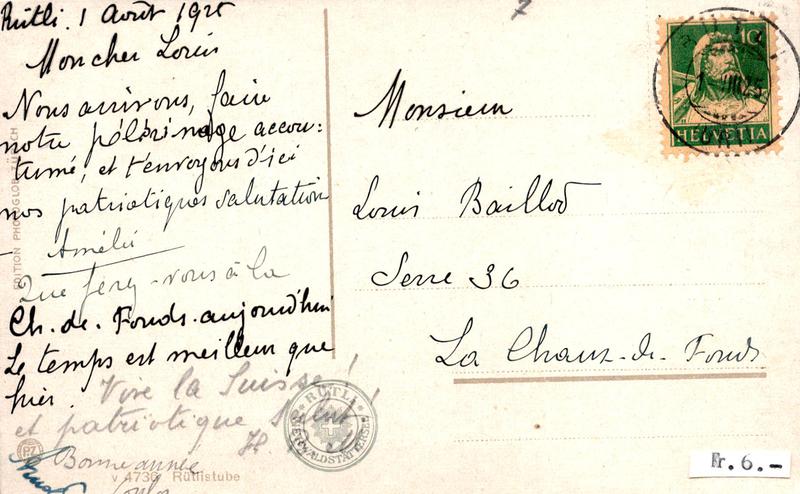 Rütli. 1 Août 1925
Mon cher Louis
Nous arrivons, faire
notre pélérinage accou-
tumé, et t'envoyons d'ici
nos patriotiques salutation
Amélie
Que ferez-vous à la
Ch.-de-Fonds aujourd'hui
Le temps est meilleur que
hier.
Vive la Suisse!
et patriotique salut!
Bonne année
V 4736 Rütlistube
PZ
EDITION PHOTOGLOB ZÜRICH
RÜTLI
VIERWALDSTÄTTERSEE
7
Monsieur
Louis Baillod
Serre 36
La Chaux-de-Fonds
10
HELVETIA
RÜTLI
(URI)
Fr. 6.-